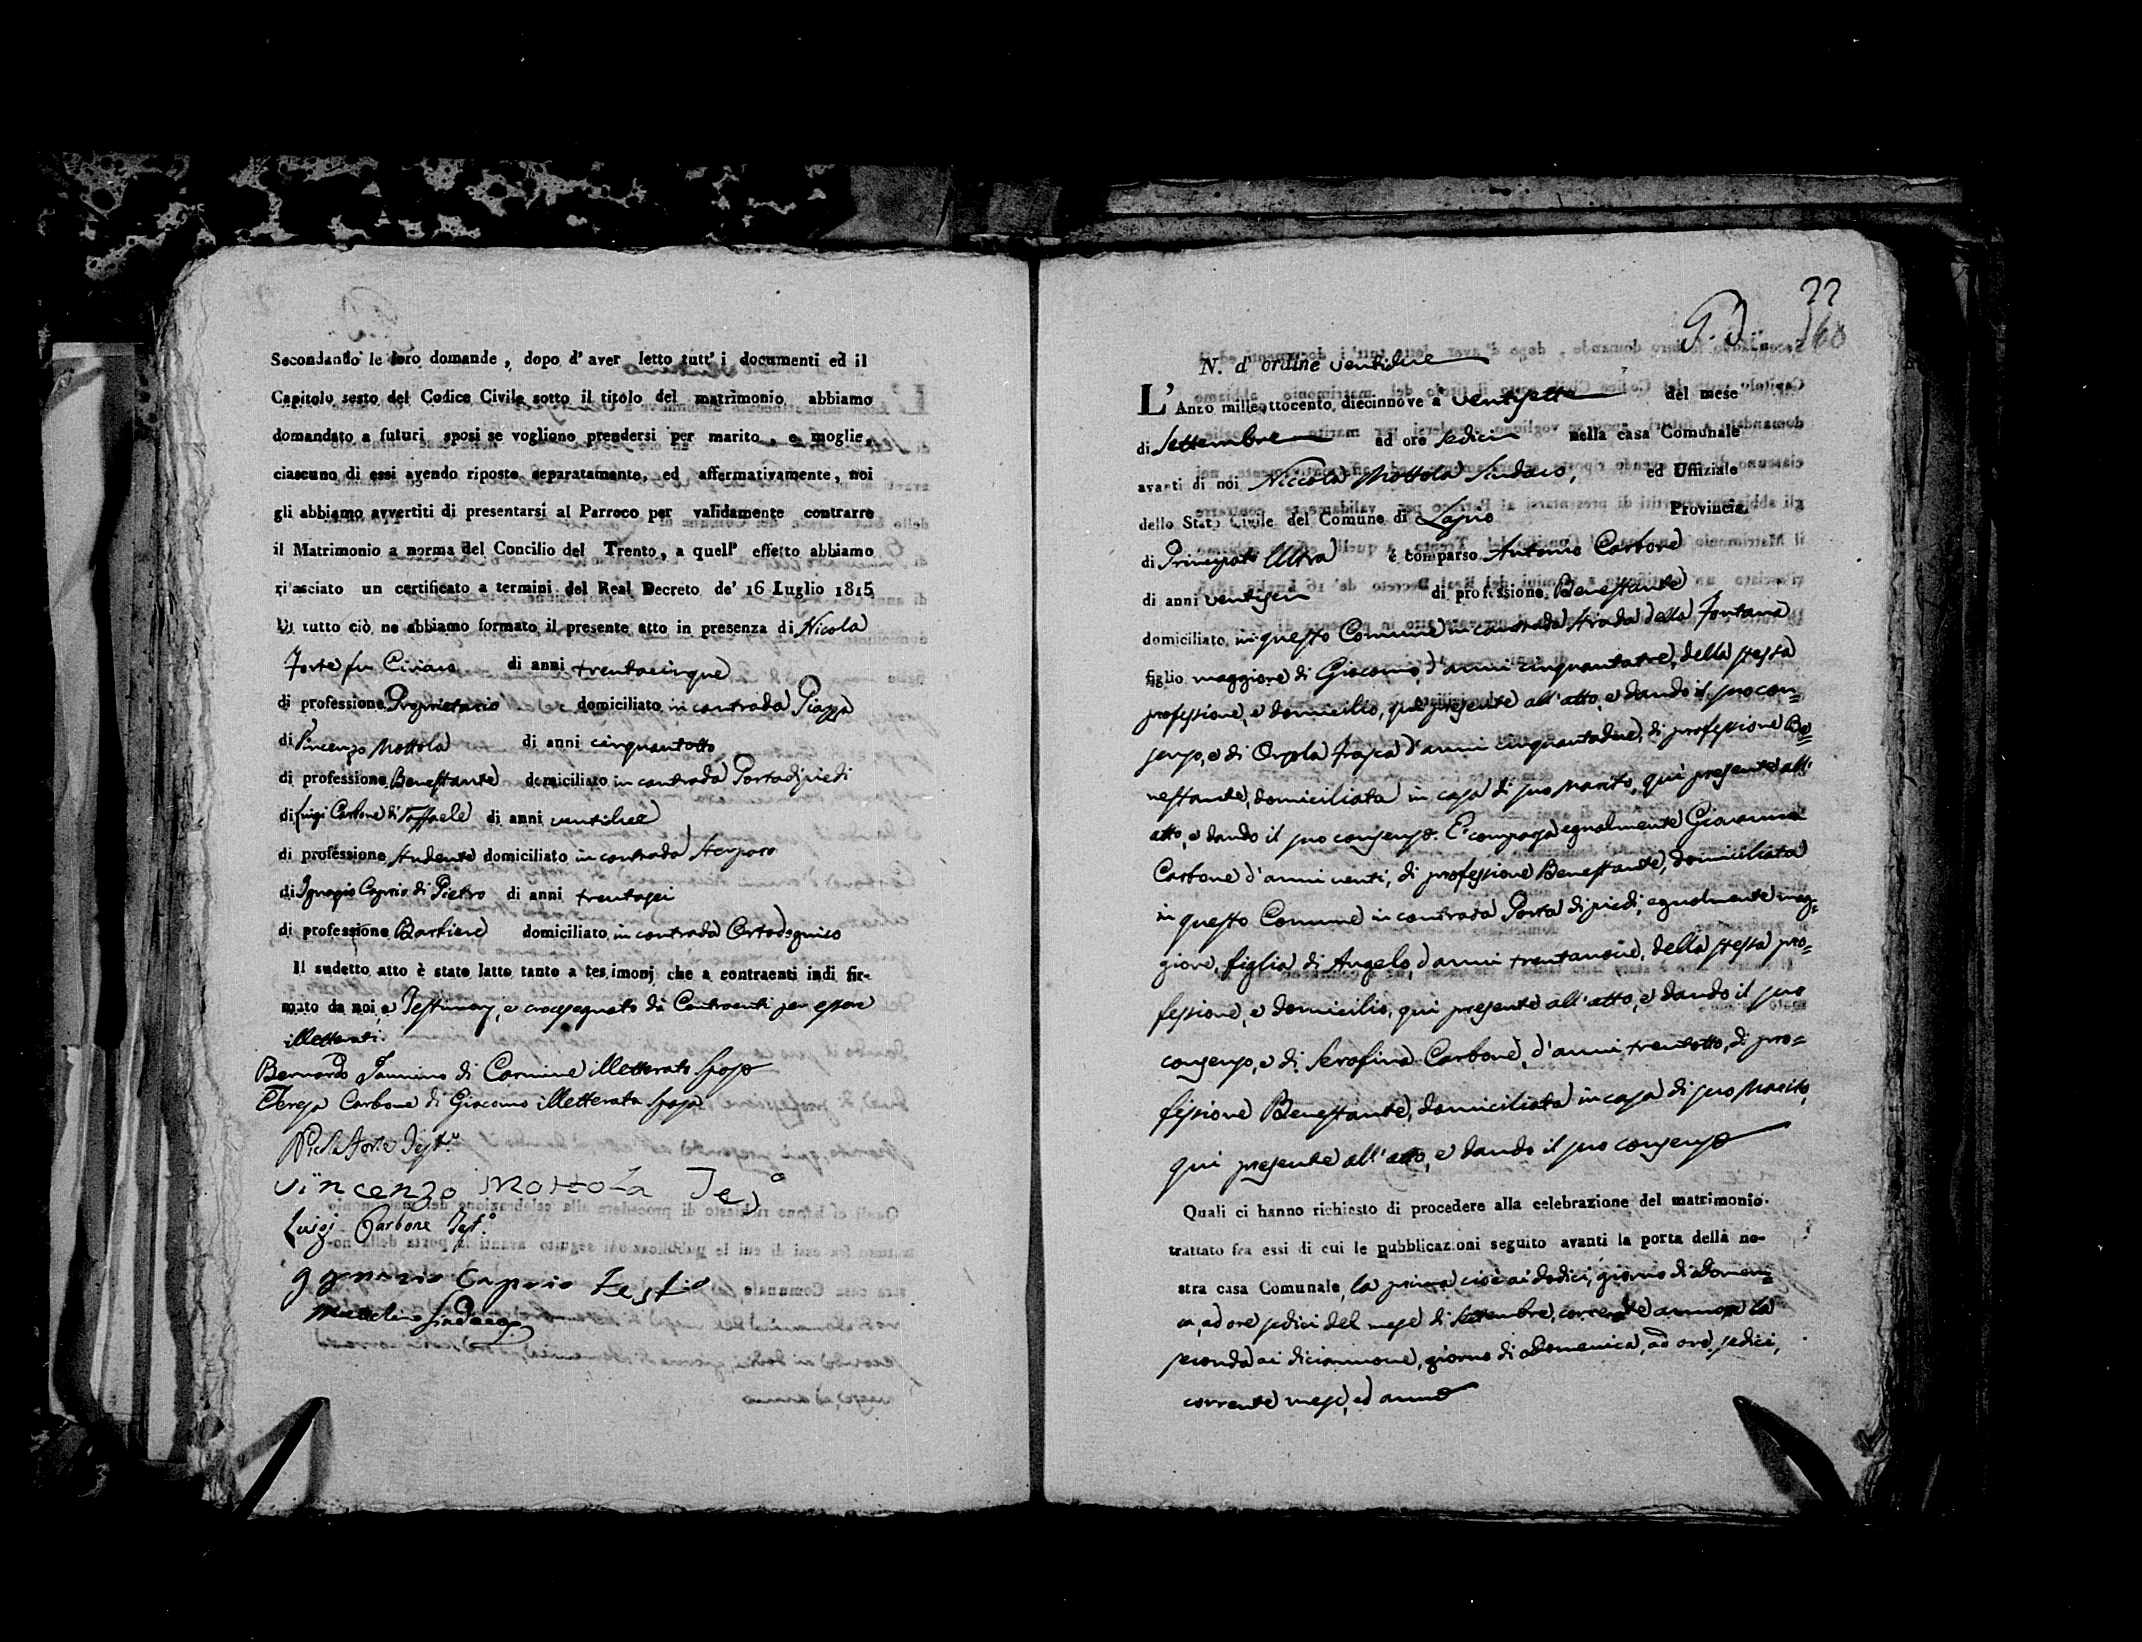 Secondando le loro domande, dopo d'aver letto tutt'i documenti ed il
Capitolo sesto del Codice Civile sotto il titolo del matrimonio abbiamo
domandato a futuri sposi se vogliono prendersi per marito, e moglie,
ciascuno di essi avendo riposto separatamente, ed affermativamente, noi
gli abbiamo avvertiti di presentarsi al Parroco per validamente contrarre
il Matrimonio a norma del Concilio del Trento, a quell' effetto abbiamo
ri'asciato un certificato a termini del Real Decreto de' 16 Luglio 1815
Di tutto ciò ne abbiamo formato il presente atto in presenza di Nicola
Forte fu Ciriaco di anni trentacinque
di professione Proprietario domiciliato in contrada Piazza
di Vincenzo Mottola di anni cinquantotto
di professione Benestante domiciliato in contrada Portadipiedi
di Luigi Carbone di Raffaele di anni ventidue
di professione studente domiciliato in contrada
di Ignazio Caprio di Pietro di anni trentasei
di professione Barbiere domiciliato in contrada
Il sudetto atto è stato latto tanto a tes,imonj che a contraenti indi fir-
mato da noi, e Testimonj, e crocesegnato da Contraenti per essere
illetterati.
Bernardo Iannino di Carmine illetterato sposo
Teresa Carbone di Giacomo illetterata sposa
Nicla Forte Test.o
Vincenzo Mottola Tes.o
Luigi Carbone Test.o
Caprio Testio
Sindaco
22
60
N. d' ordine ventidue
L' Anno milleottocento diecinnove a ventisette del mese
di Settembre ad ore sedici nella casa Comunale
avanti di noi Niccola Mottola Sindaco, ed Uffiziale
dello Stato Civile del Comune di Lapio Provincia
di Principato Ultra è comparso Antonio Carbone
di anni ventisei di professione Benestante
domiciliato in questo Comune in contrada strada della Fontana
figlio maggiore di Giacomo, d'anni cinquantatre, della stessa
professione, e domicilio, qui presente all'atto, e dando il suo con=
senso, e di Orsola Frasca d'anni cinquantadue, di professione Be=
nestante, domiciliata in casa di suo Marito, qui presente all'
atto, e dando il suo consenso. E' comparsa egualmente Giovanna
Carbone d'anni venti, di professione Benestante, domiciliata
in questo Comune in contrada Porta di piedi, egualmente mag=
giore, figlia di Angelo, d'anni trentanove, della stessa pro=
fessione, e domicilio, qui presente all'atto, e dando il suo
consenso, e di Serafina Carbone, d'anni trentotto, di pro=
fessione Benestante, domiciliata in casa di suo Marito,
qui presente all'atto, e dando il suo consenso
Quali ci hanno richiesto di procedere alla celebrazione del matrimonio
trattato fra essi di cui le pubblicazioni seguito avanti la porta della no-
stra casa Comunale, la prima cioè ai dodici, giorno di Domeni=
ca, ad ore sedici del mese di Settembre, corrente anno, e la
seconda ai diciannove, giorno di Domenica, ad ore sedici,
corrente mese, ed anno